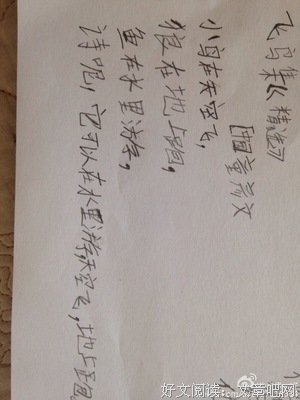 飞鸟集 精选
小鸟在天空飞,
狼在地上
鱼在水里游,
诗呢,它可以在水里游,天空飞,地上
好文阅读:文章吧网